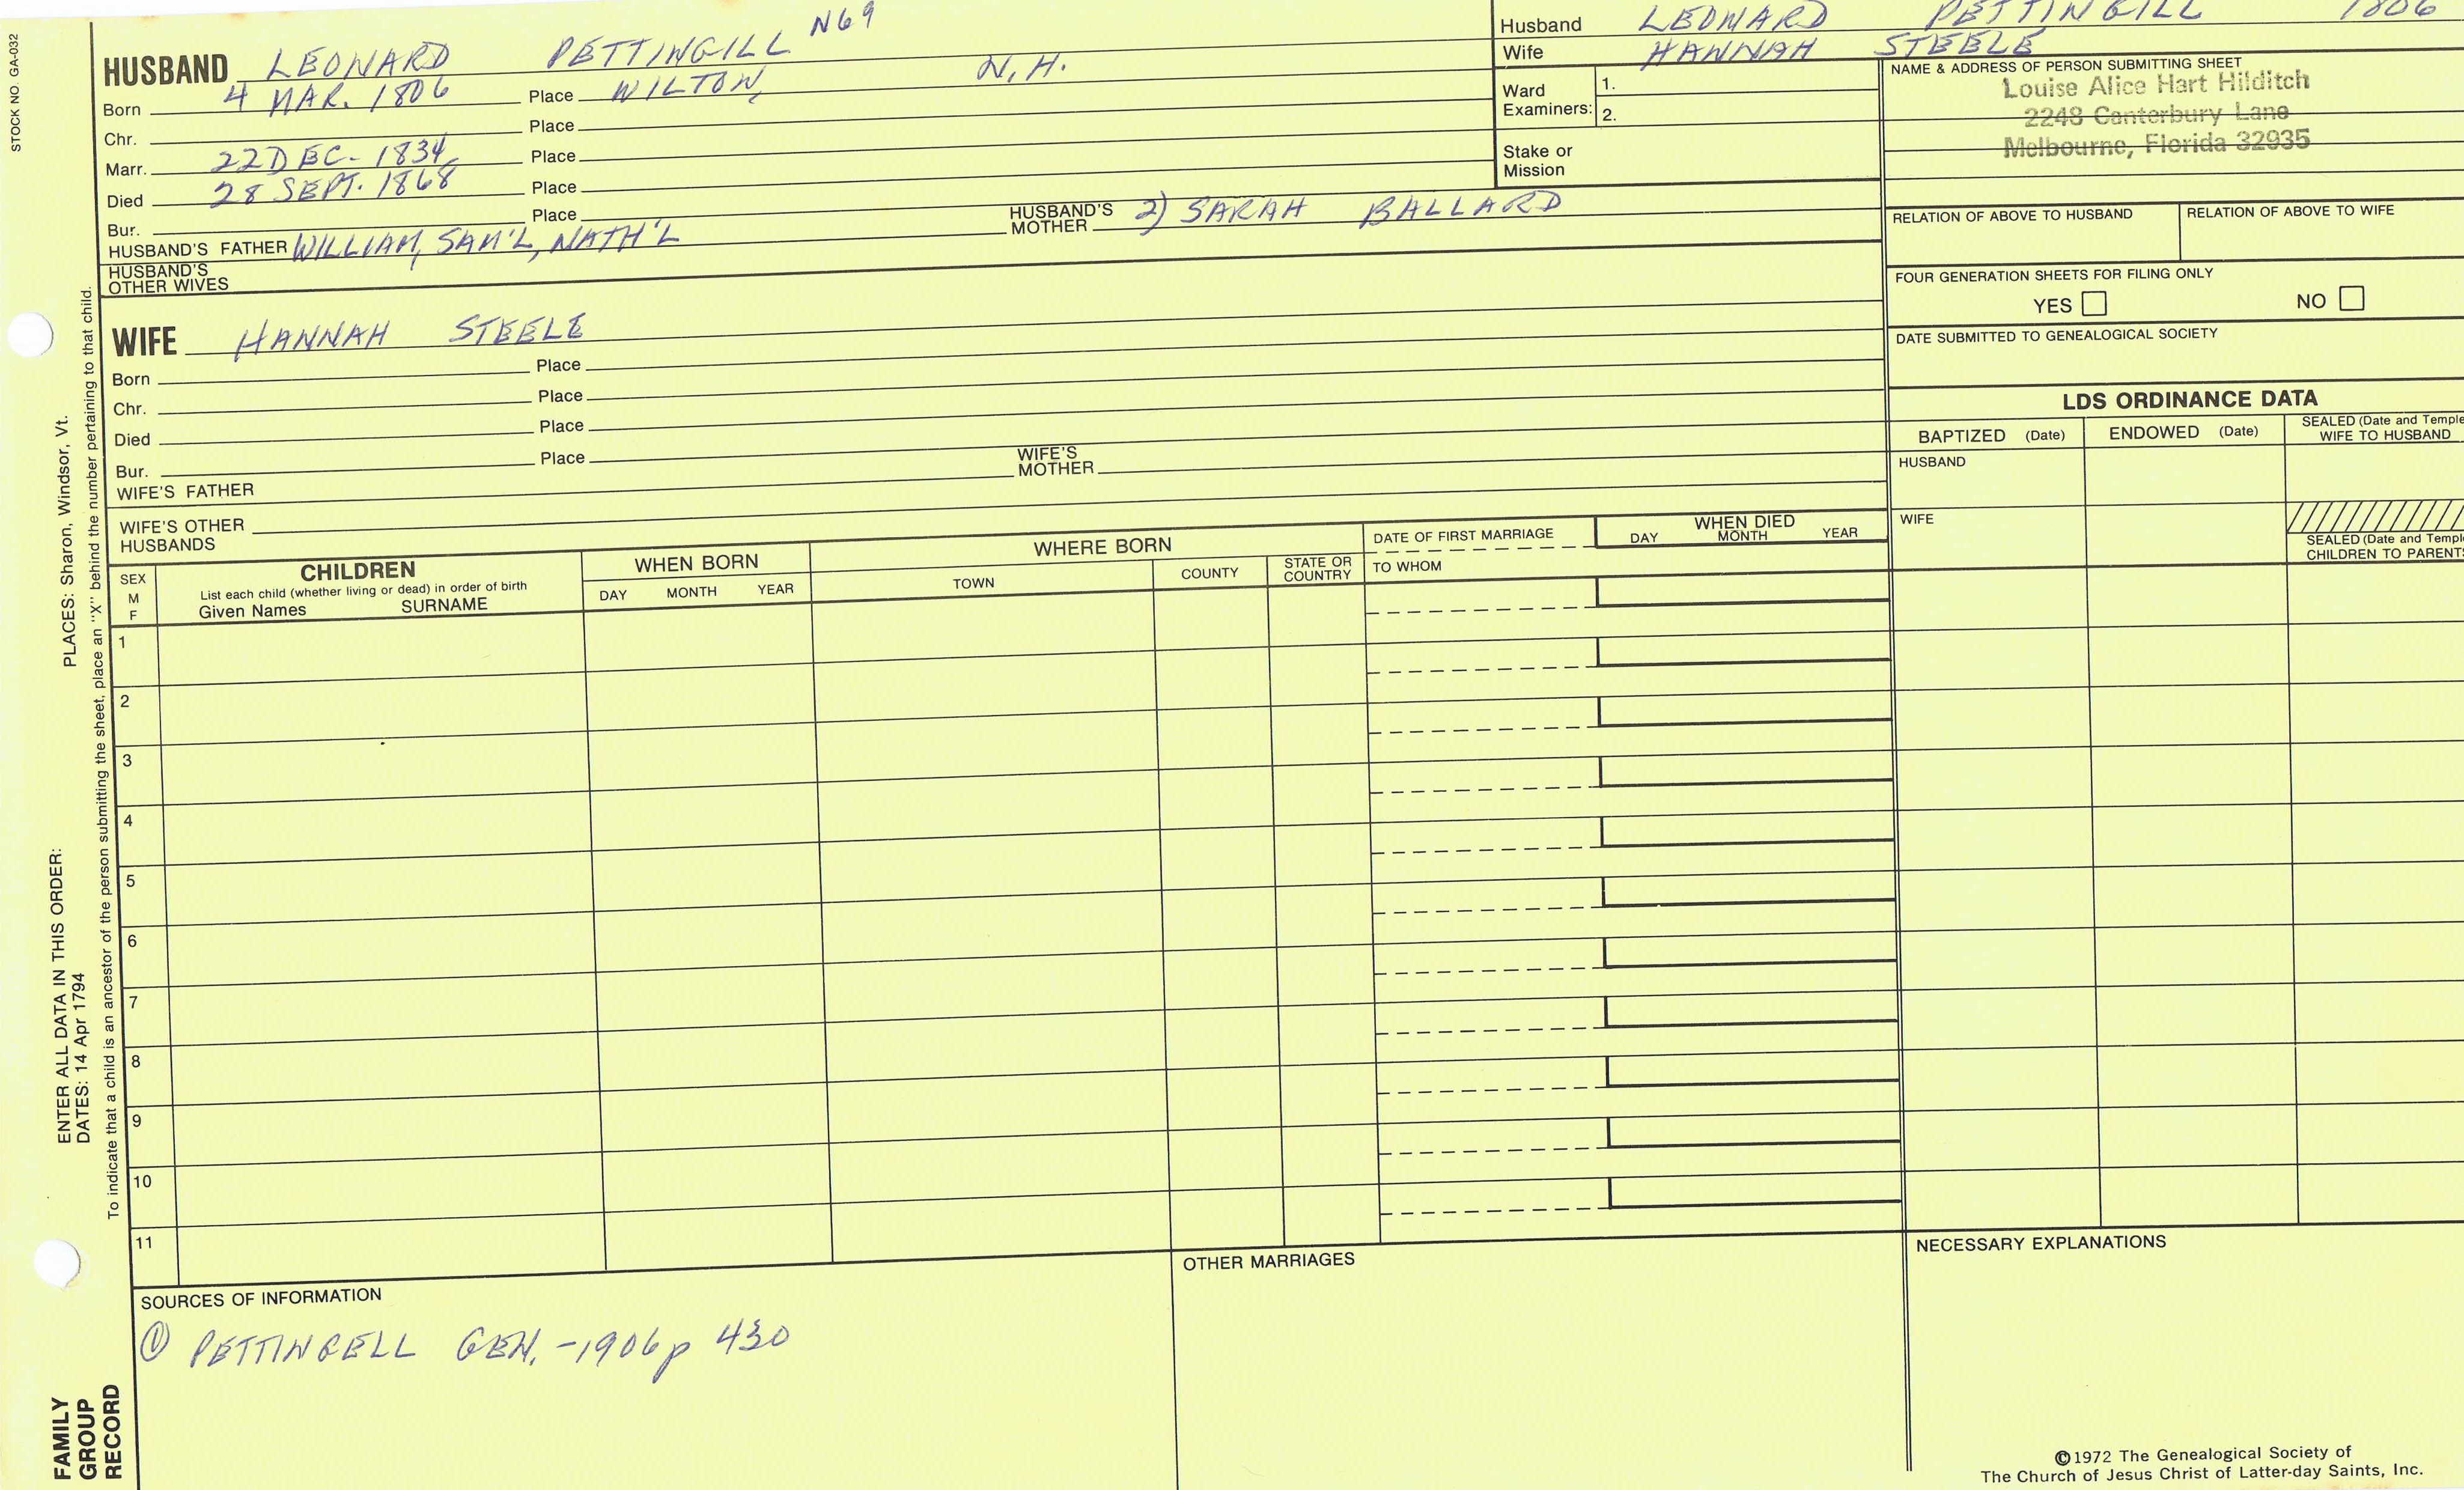 STOCK NO. GA-032
N69
HUSBAND LEONARD PETTINGILL
Born 4 MAR. 1806 Place WILTON, N.H.
Chr. Place
Marr. 22 DEC. 1834 Place
Died 28 SEPT. 1868 Place
Bur. Place
HUSBAND'S FATHER WILLIAM, SAM'L, NATH'L HUSBAND'S MOTHER 2) SARAH BALLARD
HUSBAND'S OTHER WIVES
WIFE HANNAH STEELE
Born Place
Chr. Place
Died Place
Bur. Place
WIFE'S FATHER WIFE'S MOTHER
WIFE'S OTHER HUSBANDS
Husband LEONARD PETTINGILL 1806
Wife HANNAH STEELE
Ward Examiners: 1.
2.
Stake or Mission
NAME & ADDRESS OF PERSON SUBMITTING SHEET
Louise Alice Hart Hilditch
2248 Canterbury Lane
Melbourne, Florida 32935
RELATION OF ABOVE TO HUSBAND RELATION OF ABOVE TO WIFE
FOUR GENERATION SHEETS FOR FILING ONLY
YES NO
DATE SUBMITTED TO GENEALOGICAL SOCIETY
LDS ORDINANCE DATA
BAPTIZED (Date) ENDOWED (Date) SEALED (Date and Temple WIFE TO HUSBAND
HUSBAND
WIFE
SEALED (Date and Templ
CHILDREN TO PARENTS
SEX M F
CHILDREN
List each child (whether living or dead) in order of birth
Given Names SURNAME
WHEN BORN
DAY MONTH YEAR
WHERE BORN
TOWN COUNTY STATE OR COUNTRY
DATE OF FIRST MARRIAGE
TO WHOM
WHEN DIED
DAY MONTH YEAR
1
2
3
4
5
6
7
8
9
10
11
SOURCES OF INFORMATION
① PETTINGELL GEN. -1906 p 430
OTHER MARRIAGES
NECESSARY EXPLANATIONS
©1972 The Genealogical Society of
The Church of Jesus Christ of Latter-day Saints, Inc.
FAMILY
GROUP
RECORD
ENTER ALL DATA IN THIS ORDER:
DATES: 14 Apr 1794 PLACES: Sharon, Windsor, Vt.
To indicate that a child is an ancestor of the person submitting the sheet, place an "X" behind the number pertaining to that child.